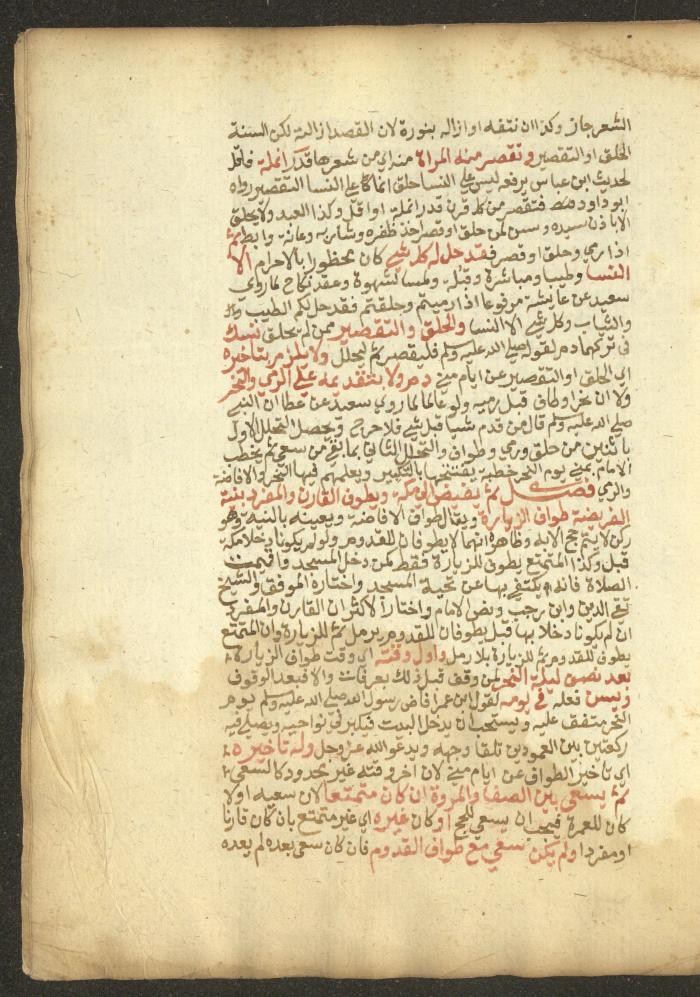 الشعر جاز وكذا ان نتفه او ازاله بنورة لان القصد ازالته لكن السنة
الحلق او التقصير وتقصر منه المراة منه اي من شعرها قدر انملة فاقل
لحديث ابن عباس يرفعه ليس على النسا حلق انما على النسا التقصير رواه
ابو داود فتقصر من كل قرن قدر انملة او اقل وكذا العبد ولا يحلق
الا باذن سيده وسن لمن حلق او قصر اخذ ظفره وشاربه وعانته وابطه ثم
اذا رمي وحلق او قصر فقد حل له كل شي كان محظورا بالاحرام الا
النسا وطيا ومباشرة وقبلة ولمسا لشهوة وعقد نكاح لما روى
سعيد عن عايشة مرفوعا اذا رميتم وحلقتم فقد حل لكم الطيب
والثياب وكل شي الا النسا والحلق والتقصير ممن لم يحلق نسك
في تركهما دم لقوله صلى الله عليه وسلم فليقصر ثم ليحلل ولا يلزم بتاخيره
اي الحلق او التقصير عن ايام منى دم ولا بتقديمه على الرمي والنحر
ولا ان نحر او طاف قبل رميه ولو عالما لما روي سعيد عن عطا ان النبي
صلى الله عليه وسلم قال من قدم شيا قبل شي فلا حرج ويحصل التحلل الاول
باثنين من حلق ورمي وطواف والتحلل الثاني بما بقي مع سعي ثم يخطب
الامام بمنى يوم النحر خطبة يفتتحها بالتكبير ويعلمهم فيها النحر والافاضة
والرمي فصل ثم يفيض الى مكة ويطوف القارن والمفرد بنية
الفريضة طواف الزيارة ويقال طواف الافاضة ويعينه بالنية وهو
ركن لا يتم حج الا به وظاهره انهما لا يطوفان للقدوم ولو لم يكونا دخلا مكة
قبل وكذا المتمتع يطوف للزيارة فقط كمن دخل المسجد واقيمت
الصلاة فانه يكتفى بها عن تحية المسجد واختاره الموفق والشيخ
تقي الدين وابن رجب ونص الامام واختاره الاكثر ان القارن والمفرد
ان لم يكونا دخلاها قبل يطوفان للقدوم برمل ثم للزيارة وان المتمتع
يطوف للقدوم ثم للزيارة بلا رمل واول وقته اي وقت طواف الزيارة
بعد نصف ليلة النحر لمن وقف قبل ذلك بعرفات والا فبعد الوقوف
ويسن فعله في يومه لقول ابن عمر افاض رسول الله صلى الله عليه وسلم يوم
النحر متفق عليه ويستحب ان يدخل البيت فيكبر في نواحيه ويصلي فيه
ركعتين بين العمودين تلقا وجهه ويدعو الله عز وجل وله تاخيره
اي تاخير الطواف عن ايام منى لان اخر وقته غير محدود كالسعي
ثم يسعى بين الصفا والمروة ان كان متمتعا لان سعيه اولا
كان للعمرة فيجب ان يسعى للحج او كان غيره اي غير متمتع بان كان قارنا
او مفردا ولم يكن سعى مع طواف القدوم فان كان سعى بعده لم يعده